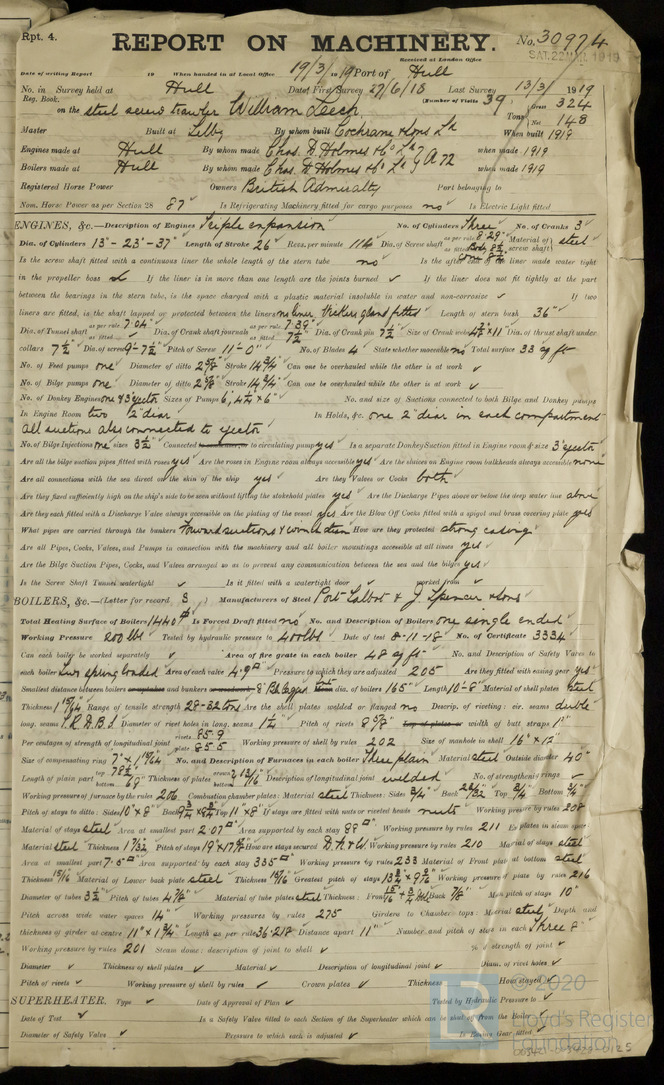 Rpt. 4.
REPORT ON MACHINERY. No. 30974
Received at London Office SAT. 22 MAR 1919
Date of writing Report 19 When handed in at Local Office 19/3/1919 Port of Hull
No. in Survey held at Hull Date, First Survey 27/6/18 Last Survey 13/3/1919
Reg. Book. (Number of Visits 39)
on the steel screw trawler William Leech Tons Gross 324 Net 148
Master Built at Selby By whom built Cochrane & Sons Ld When built 1919
Engines made at Hull By whom made Chas. D. Holmes & Co Ld when made 1919
Boilers made at Hull By whom made Chas. D. Holmes & Co Ld when made 1919
Registered Horse Power Owners British Admiralty Port belonging to
Nom. Horse Power as per Section 28 87 Is Refrigerating Machinery fitted for cargo purposes no Is Electric Light fitted
ENGINES, &c.—Description of Engines Triple expansion No. of Cylinders Three No. of Cranks 3
Dia. of Cylinders 13"-23"-37" Length of Stroke 26" Revs. per minute 114 Dia. of Screw shaft as per rule 8.29" Material of screw shaft steel
Is the screw shaft fitted with a continuous liner the whole length of the stern tube no Is the after end of the liner made water tight
in the propeller boss ✓ If the liner is in more than one length are the joints burned ✓ If the liner does not fit tightly at the part
between the bearings in the stern tube, is the space charged with a plastic material insoluble in water and non-corrosive ✓ If two
liners are fitted, is the shaft lapped or protected between the liners no liner, gland fitted Length of stern bush 36"
Dia. of Tunnel shaft as per rule 7.04" Dia. of Crank shaft journals as per rule 7.39" as fitted 7½" Dia. of Crank pin 7½" Size of Crank webs 4¾" x 11" Dia. of thrust shaft under
collars 7½" Dia. of screw 9'-7½" Pitch of Screw 11'-0" No. of Blades 4 State whether moveable no Total surface 33 sq ft
No. of Feed pumps one Diameter of ditto 2⅝" Stroke 14¾" Can one be overhauled while the other is at work ✓
No. of Bilge pumps one Diameter of ditto 2⅝" Stroke 14¾" Can one be overhauled while the other is at work ✓
No. of Donkey Engines one & 3" ejector Sizes of Pumps 6", 4½" x 6" No. and size of Suctions connected to both Bilge and Donkey pumps
In Engine Room two 2" diar In Holds, &c. one 2" diar in each compartment
All suctions also connected to ejector
No. of Bilge Injections one sizes 3½" Connected to circulating pump yes Is a separate Donkey Suction fitted in Engine room & size 3" ejector
Are all the bilge suction pipes fitted with roses yes Are the roses in Engine room always accessible yes Are the sluices on Engine room bulkheads always accessible none
Are all connections with the sea direct on the skin of the ship yes Are they Valves or Cocks both
Are they fixed sufficiently high on the ship's side to be seen without lifting the stokehold plates yes Are the Discharge Pipes above or below the deep water line above
Are they each fitted with a Discharge Valve always accessible on the plating of the vessel yes Are the Blow Off Cocks fitted with a spigot and brass covering plate yes
What pipes are carried through the bunkers Forward suctions & How are they protected strong casing
Are all Pipes, Cocks, Valves, and Pumps in connection with the machinery and all boiler mountings accessible at all times yes
Are the Bilge Suction Pipes, Cocks, and Valves arranged so as to prevent any communication between the sea and the bilges yes
Is the Screw Shaft Tunnel watertight ✓ Is it fitted with a watertight door ✓ worked from ✓
BOILERS, &c.—(Letter for record S) Manufacturers of Steel Port Talbot & J. Spencer & Sons
Total Heating Surface of Boilers 1440 Is Forced Draft fitted no No. and Description of Boilers one single ended
Working Pressure 200 lbs Tested by hydraulic pressure to 400 lbs Date of test 8-11-18 No. of Certificate 3334
Can each boiler be worked separately ✓ Area of fire grate in each boiler 48 sq ft No. and Description of Safety Valves to
each boiler two spring loaded Area of each valve 4.9 Pressure to which they are adjusted 205 Are they fitted with easing gear yes
Smallest distance between boilers and bunkers 8" lagged dia. of boilers 165" Length 10'-8" Material of shell plates steel
Thickness Range of tensile strength 28-32 tons Are the shell plates welded or flanged no Descrip. of riveting: cir. seams double
long. seams T.R.D.B.S Diameter of rivet holes in long. seams 1¼" Pitch of rivets 8⅝" width of butt straps
Per centages of strength of longitudinal joint rivets 85.9 plate 85.5 Working pressure of shell by rules 202 Size of manhole in shell 16" x 12"
Size of compensating ring No. and Description of Furnaces in each boiler Three plain Material steel Outside diameter 40"
Length of plain part top 78½" bottom 68" Thickness of plates Description of longitudinal joint welded No. of strengthening rings ✓
Working pressure of furnace by the rules 206 Combustion chamber plates: Material steel Thickness: Sides ¾" Back Top ¾" Bottom ¾"
Pitch of stays to ditto: Sides 10" x 8" Back Top 11" x 8" If stays are fitted with nuts or riveted heads nuts Working pressure by rules 208
Material of stays steel Area at smallest part 2.07 Area supported by each stay 88 Working pressure by rules 211 End plates in steam space:
Material steel Thickness Pitch of stays How are stays secured D.N. & W. Working pressure by rules 210 Material of stays steel
Area at smallest part Area supported by each stay 335 Working pressure by rules 233 Material of Front plates at bottom steel
Thickness 15/16 Material of Lower back plate steel Thickness 15/16 Greatest pitch of stays Working pressure of plate by rules 216
Diameter of tubes 3½" Pitch of tubes 4⅞" Material of tube plates steel Thickness: Front Back ⅞" Mean pitch of stays 10"
Pitch across wide water spaces 14" Working pressures by rules 275 Girders to Chamber tops: Material steel Depth and
thickness of girder at centre 11" x 1¾" Length as per rule Distance apart 11" Number and pitch of stays in each Three 8"
Working pressure by rules 201 Steam dome: description of joint to shell ✓ % of strength of joint ✓
Diameter ✓ Thickness of shell plates ✓ Material ✓ Description of longitudinal joint ✓ Diam. of rivet holes ✓
Pitch of rivets ✓ Working pressure of shell by rules ✓ Crown plates ✓ Thickness How stayed
SUPERHEATER. Type ✓ Date of Approval of Plan ✓ Tested by Hydraulic Pressure to ✓
Date of Test ✓ Is a Safety Valve fitted to each Section of the Superheater which can be shut off from the Boiler
Diameter of Safety Valve ✓ Pressure to which each is adjusted ✓ Is Easing Gear fitted
© 2020
Lloyd's Register
Foundation